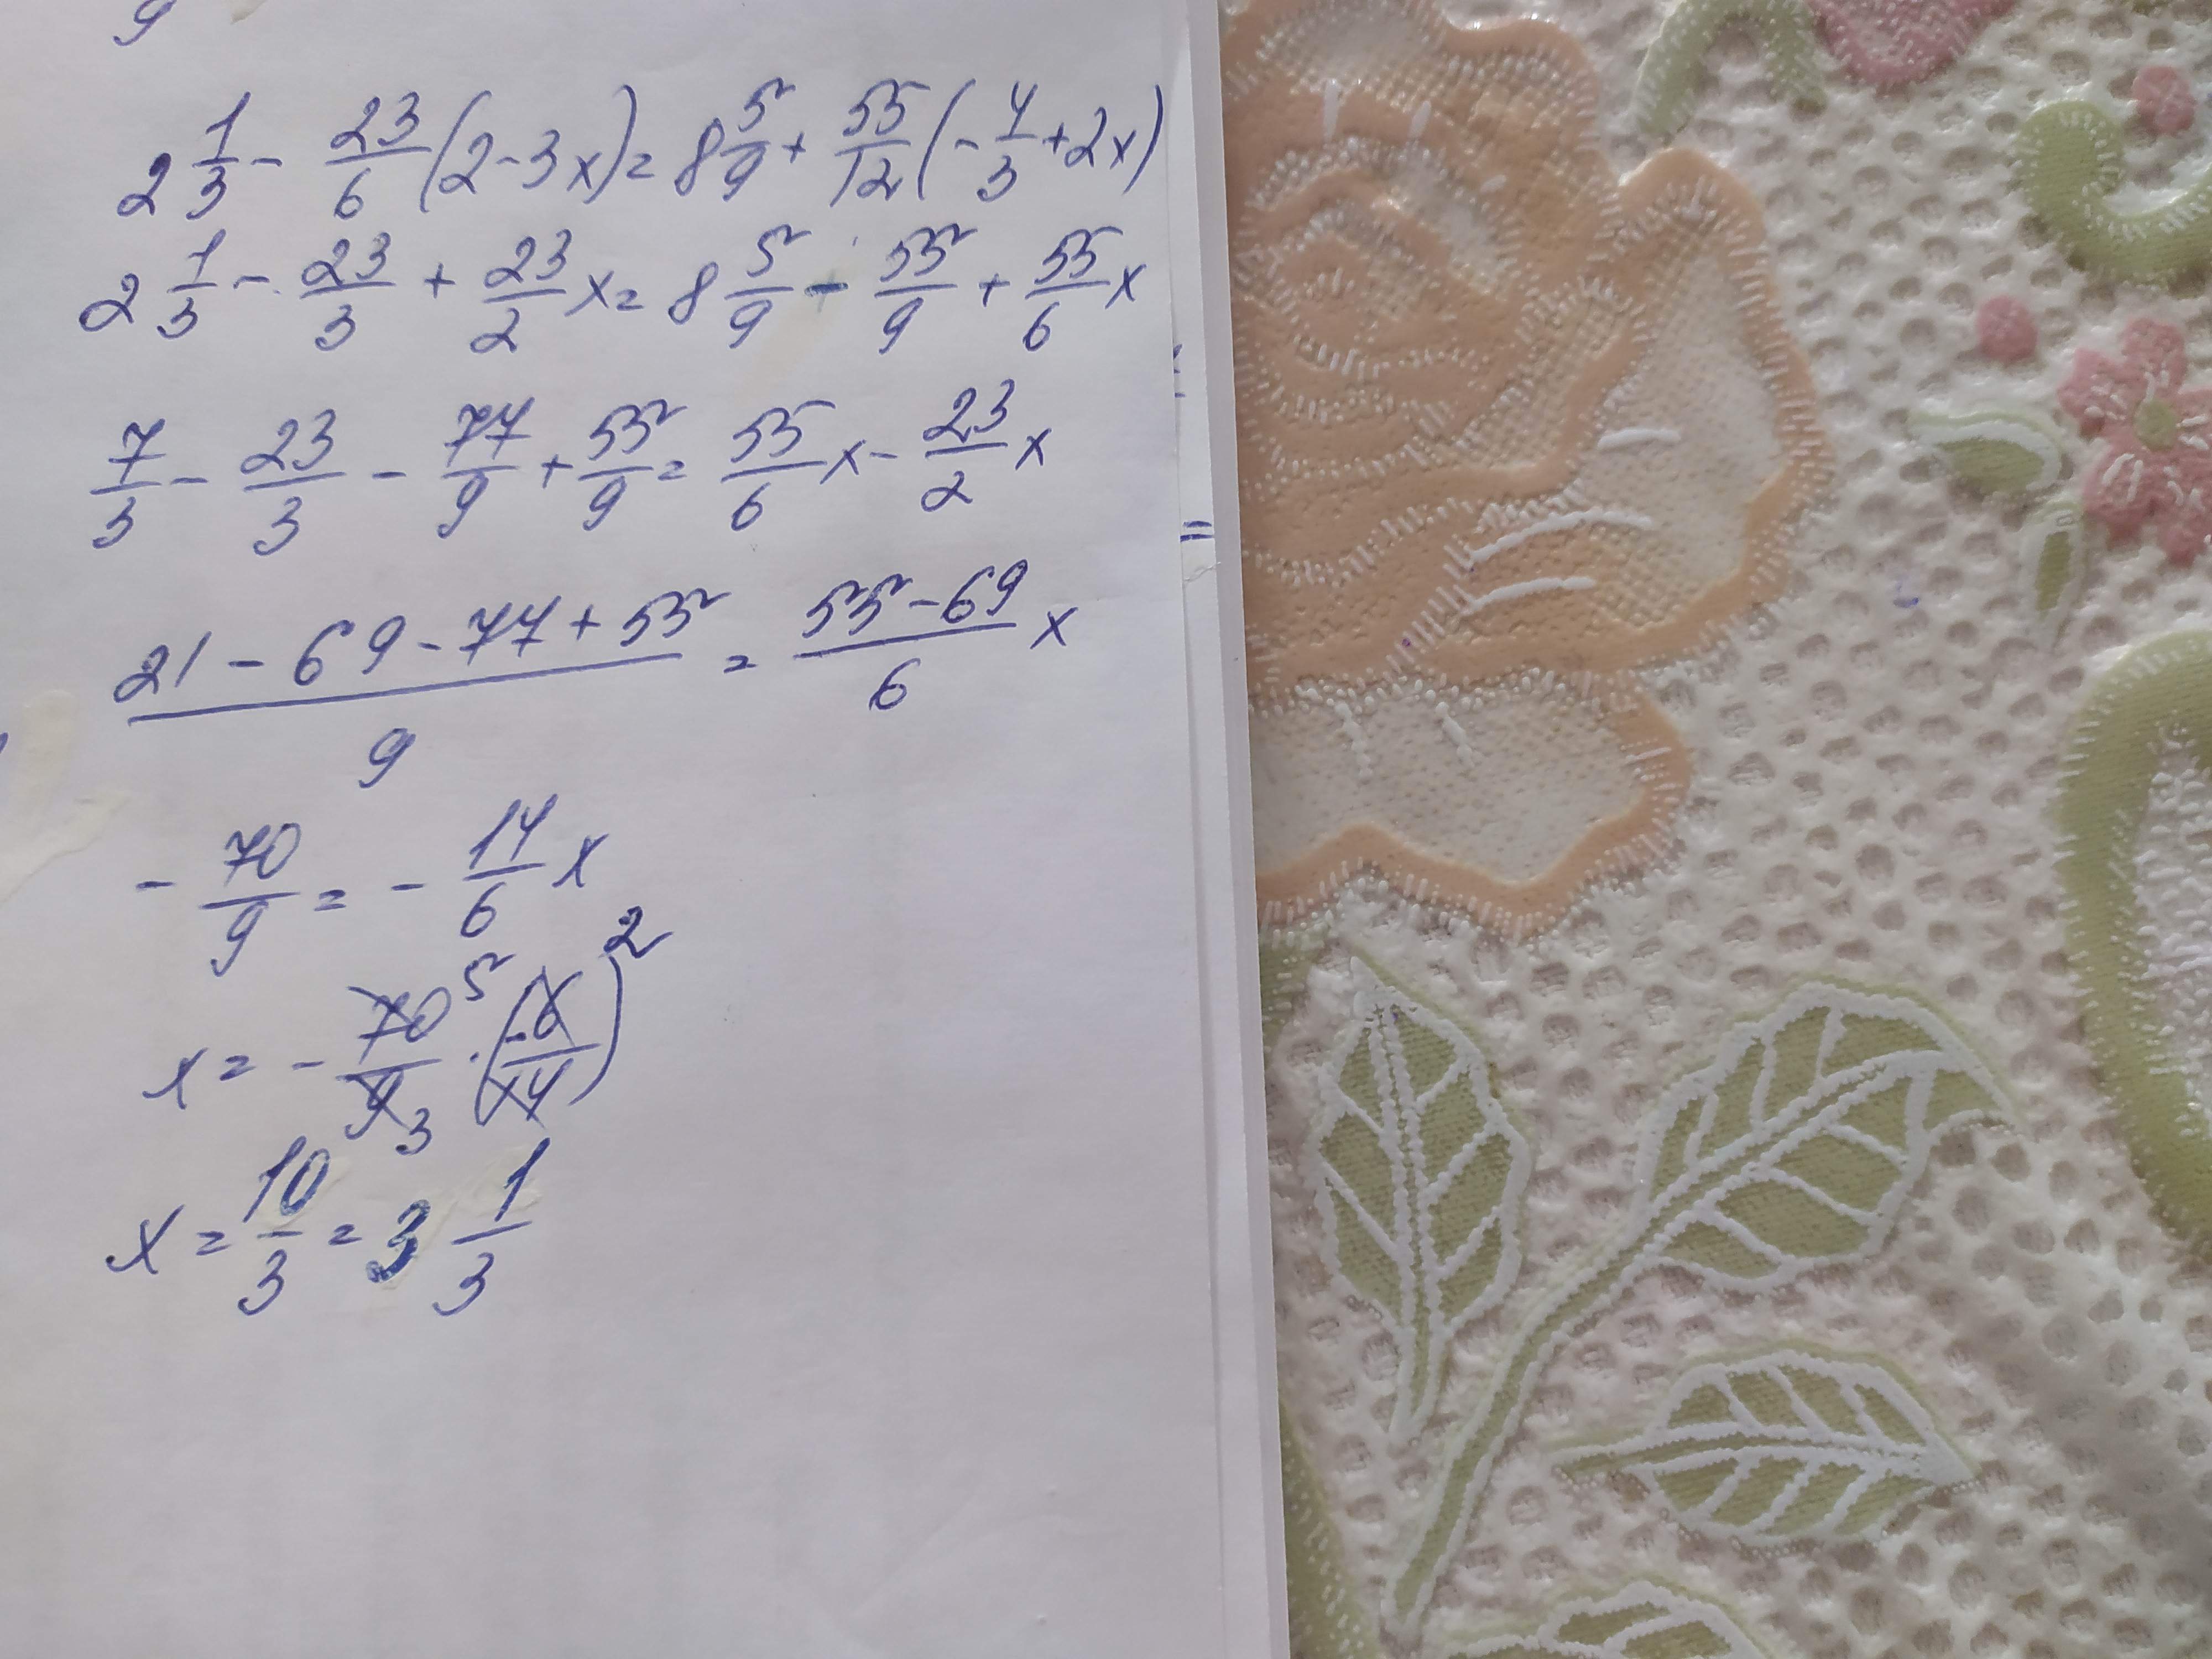 9
2 1/3 - 23/6 (2-3x) = 8 5/9 + 55/12 (-4/3 + 2x)
2 1/3 - 23/3 + 23/2 x = 8 5/9 - 55/9 + 55/6 x
7/3 - 23/3 - 77/9 + 55/9 = 55/6 x - 23/2 x
(21 - 69 - 77 + 55)/9 = (55 - 69)/6 x
- 70/9 = - 14/6 x
x = - 70/9 5 3 · (-6/14) 2
x = 10/3 = 3 1/3
=